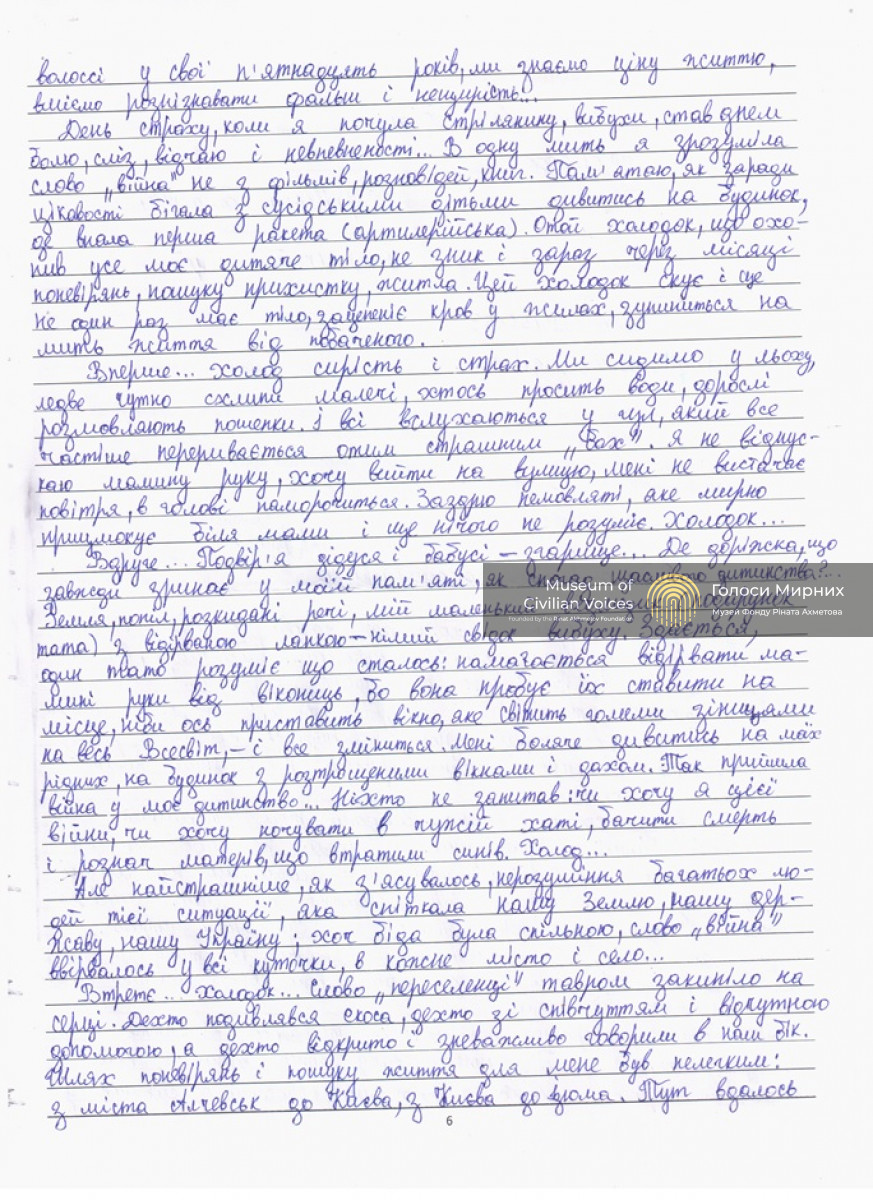 волоссі у свої п'ятнадцять років, ми знаємо ціну життю,
вміємо розпізнавати фальш і нещирість...
День страху, коли я почула стрілянину, вибухи, став днем
болю, сліз, відчаю і невпевнености... В одну мить я зрозуміла
слово „війна" не з фільмів, розповідей, книг. Пам'ятаю, як заради
цікавості бігала з сусідськими дітьми дивитись на будинок,
де впала перша ракета (артилерійська). Отой холодок, що охо-
пив усе моє дитяче тіло, не зник і зараз через місяці
поневірянь, пошуку прихистку, житла. Цей холодок скує і ще
не один раз моє тіло, заціпеніє кров у жилах, зупиниться на
мить життя від побаченого.
Вперше... Холод сирість і страх. Ми сидимо у льоху,
ледве чутно схлипи малечі, хтось просить води, дорослі
розмовляють пошепки. І всі вслухаються у гул, який все
частіше переривається отим страшним „бах". Я не відпус-
каю мамину руку, хочу вийти на вулицю, мені не вистачає
повітря, в голові паморочиться. Заздрю немовляті, яке мирно
прицмокує біля мами і ще нічого не розуміє. Холодок...
Вдруге... Подвір'я дідуся і бабусі – згарище... Де доріжка, що
завжди зринає у моїй пам'яті, як спогад щасливого дитинства?...
Земля, попіл, розкидані речі, мій маленький подарунок
тата) з відірваною лапкою – німий свідок вибуху. Здається,
один тато розуміє що сталось: намагається відірвати ма-
мині руки від віконниць, бо вона пробує їх ставити на
місце, ніби ось приставить вікно, яке світить голими зіницями
на весь Всесвіт, – і все зміниться. Мені боляче дивитись на моїх
рідних, на будинок з розтрощеними вікнами і дахом. Так прийшла
війна у моє дитинство... Ніхто не запитав: чи хочу я цієї
війни, чи хочу ночувати в чужій хаті, бачити смерть
і розпач матерів, що втратили синів. Холод...
Але найстрашніше, як з'ясувалось, нерозуміння багатьох лю-
дей тієї ситуації, яка спіткала нашу Землю, нашу дер-
жаву, нашу Україну; хоч біда була спільною, слово „війна"
ввірвалось у всі куточки, в кожне місто і село...
Втретє... Холодок... Слово „переселенці" тавром закипіло на
серці. Дехто подивлявся скоса, дехто зі співчуттям і відчутною
допомогою, а дехто відкрито і зневажливо говорили в наш бік.
Шлях поневірянь і пошуку життя для мене був нелегким:
з міста Алчевськ до Києва, з Києва до Ізюма. Тут вдалось
6
Museum of
Civilian Voices
Founded by the Rinat Akhmetov Foundation
Голоси Мирних
Музей Фонду Ріната Ахметова